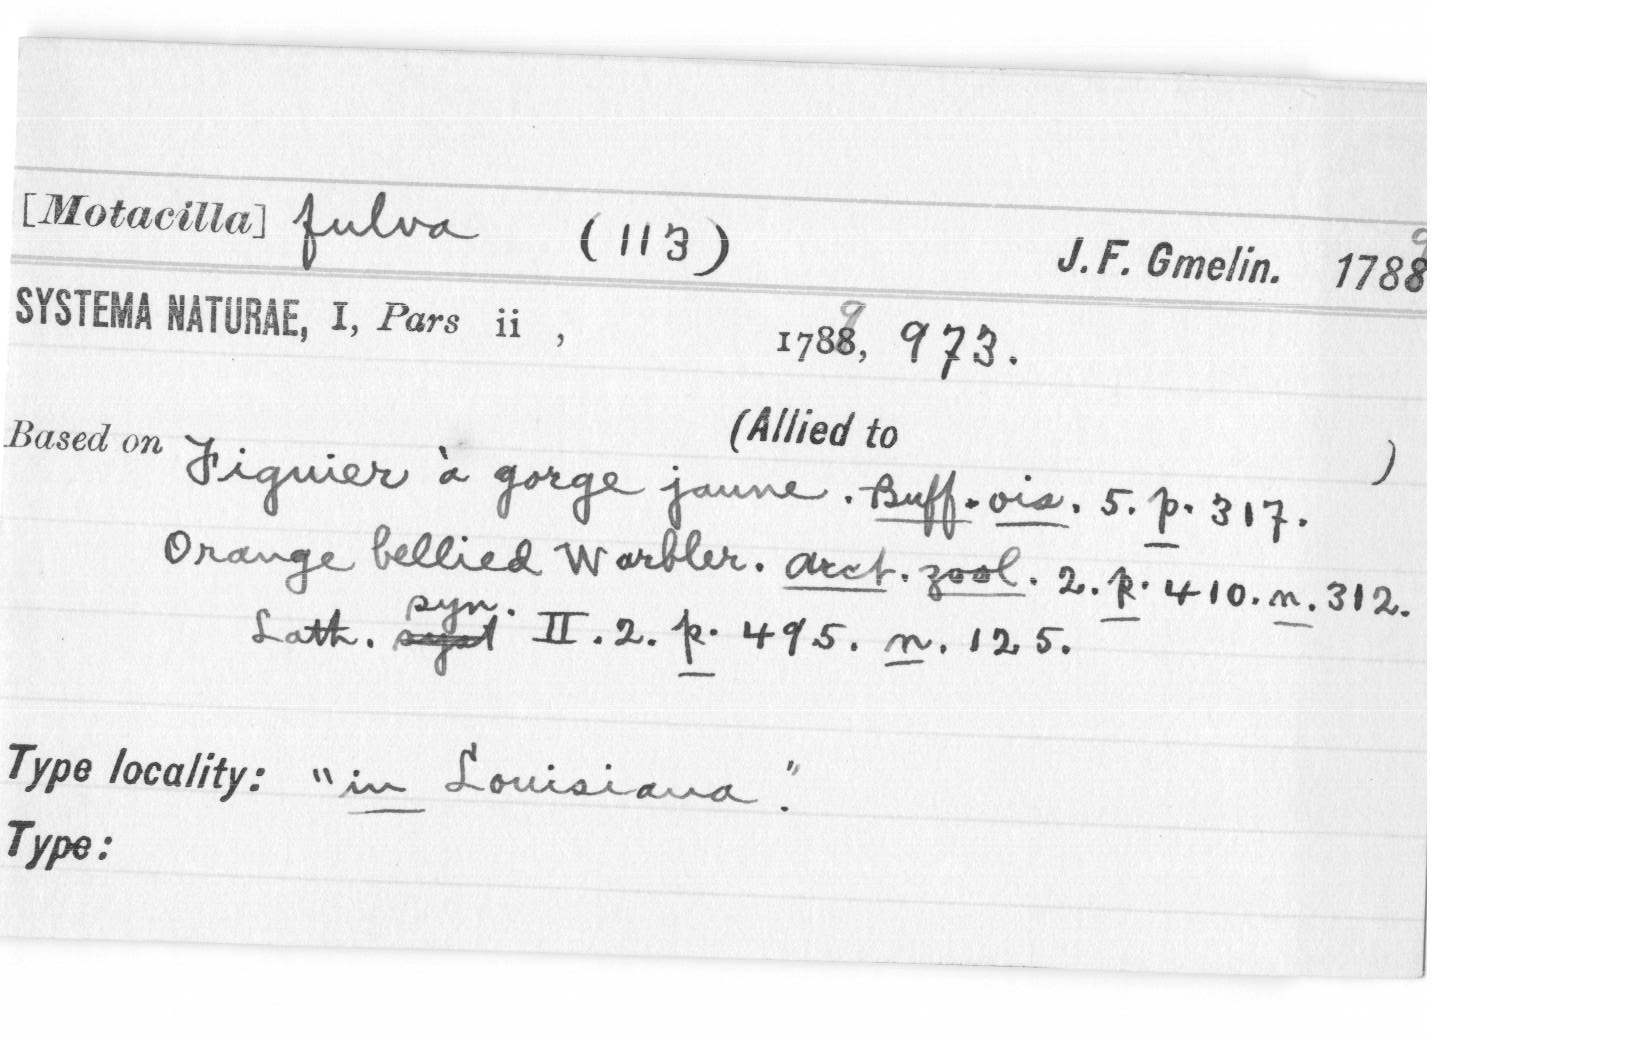 [Motacilla] fulva (113) J. F. Gmelin. 1789
SYSTEMA NATURAE, I, Pars ii , 1789, 973.
(Allied to )
Based on Figuier à gorge jaune. Buff. ois. 5. p. 317.
Orange bellied Warbler. Arct. zool. 2. p. 410. n. 312.
Lath. syst syn. II. 2. p. 495. n. 125.
Type locality: "in Louisiana".
Type: